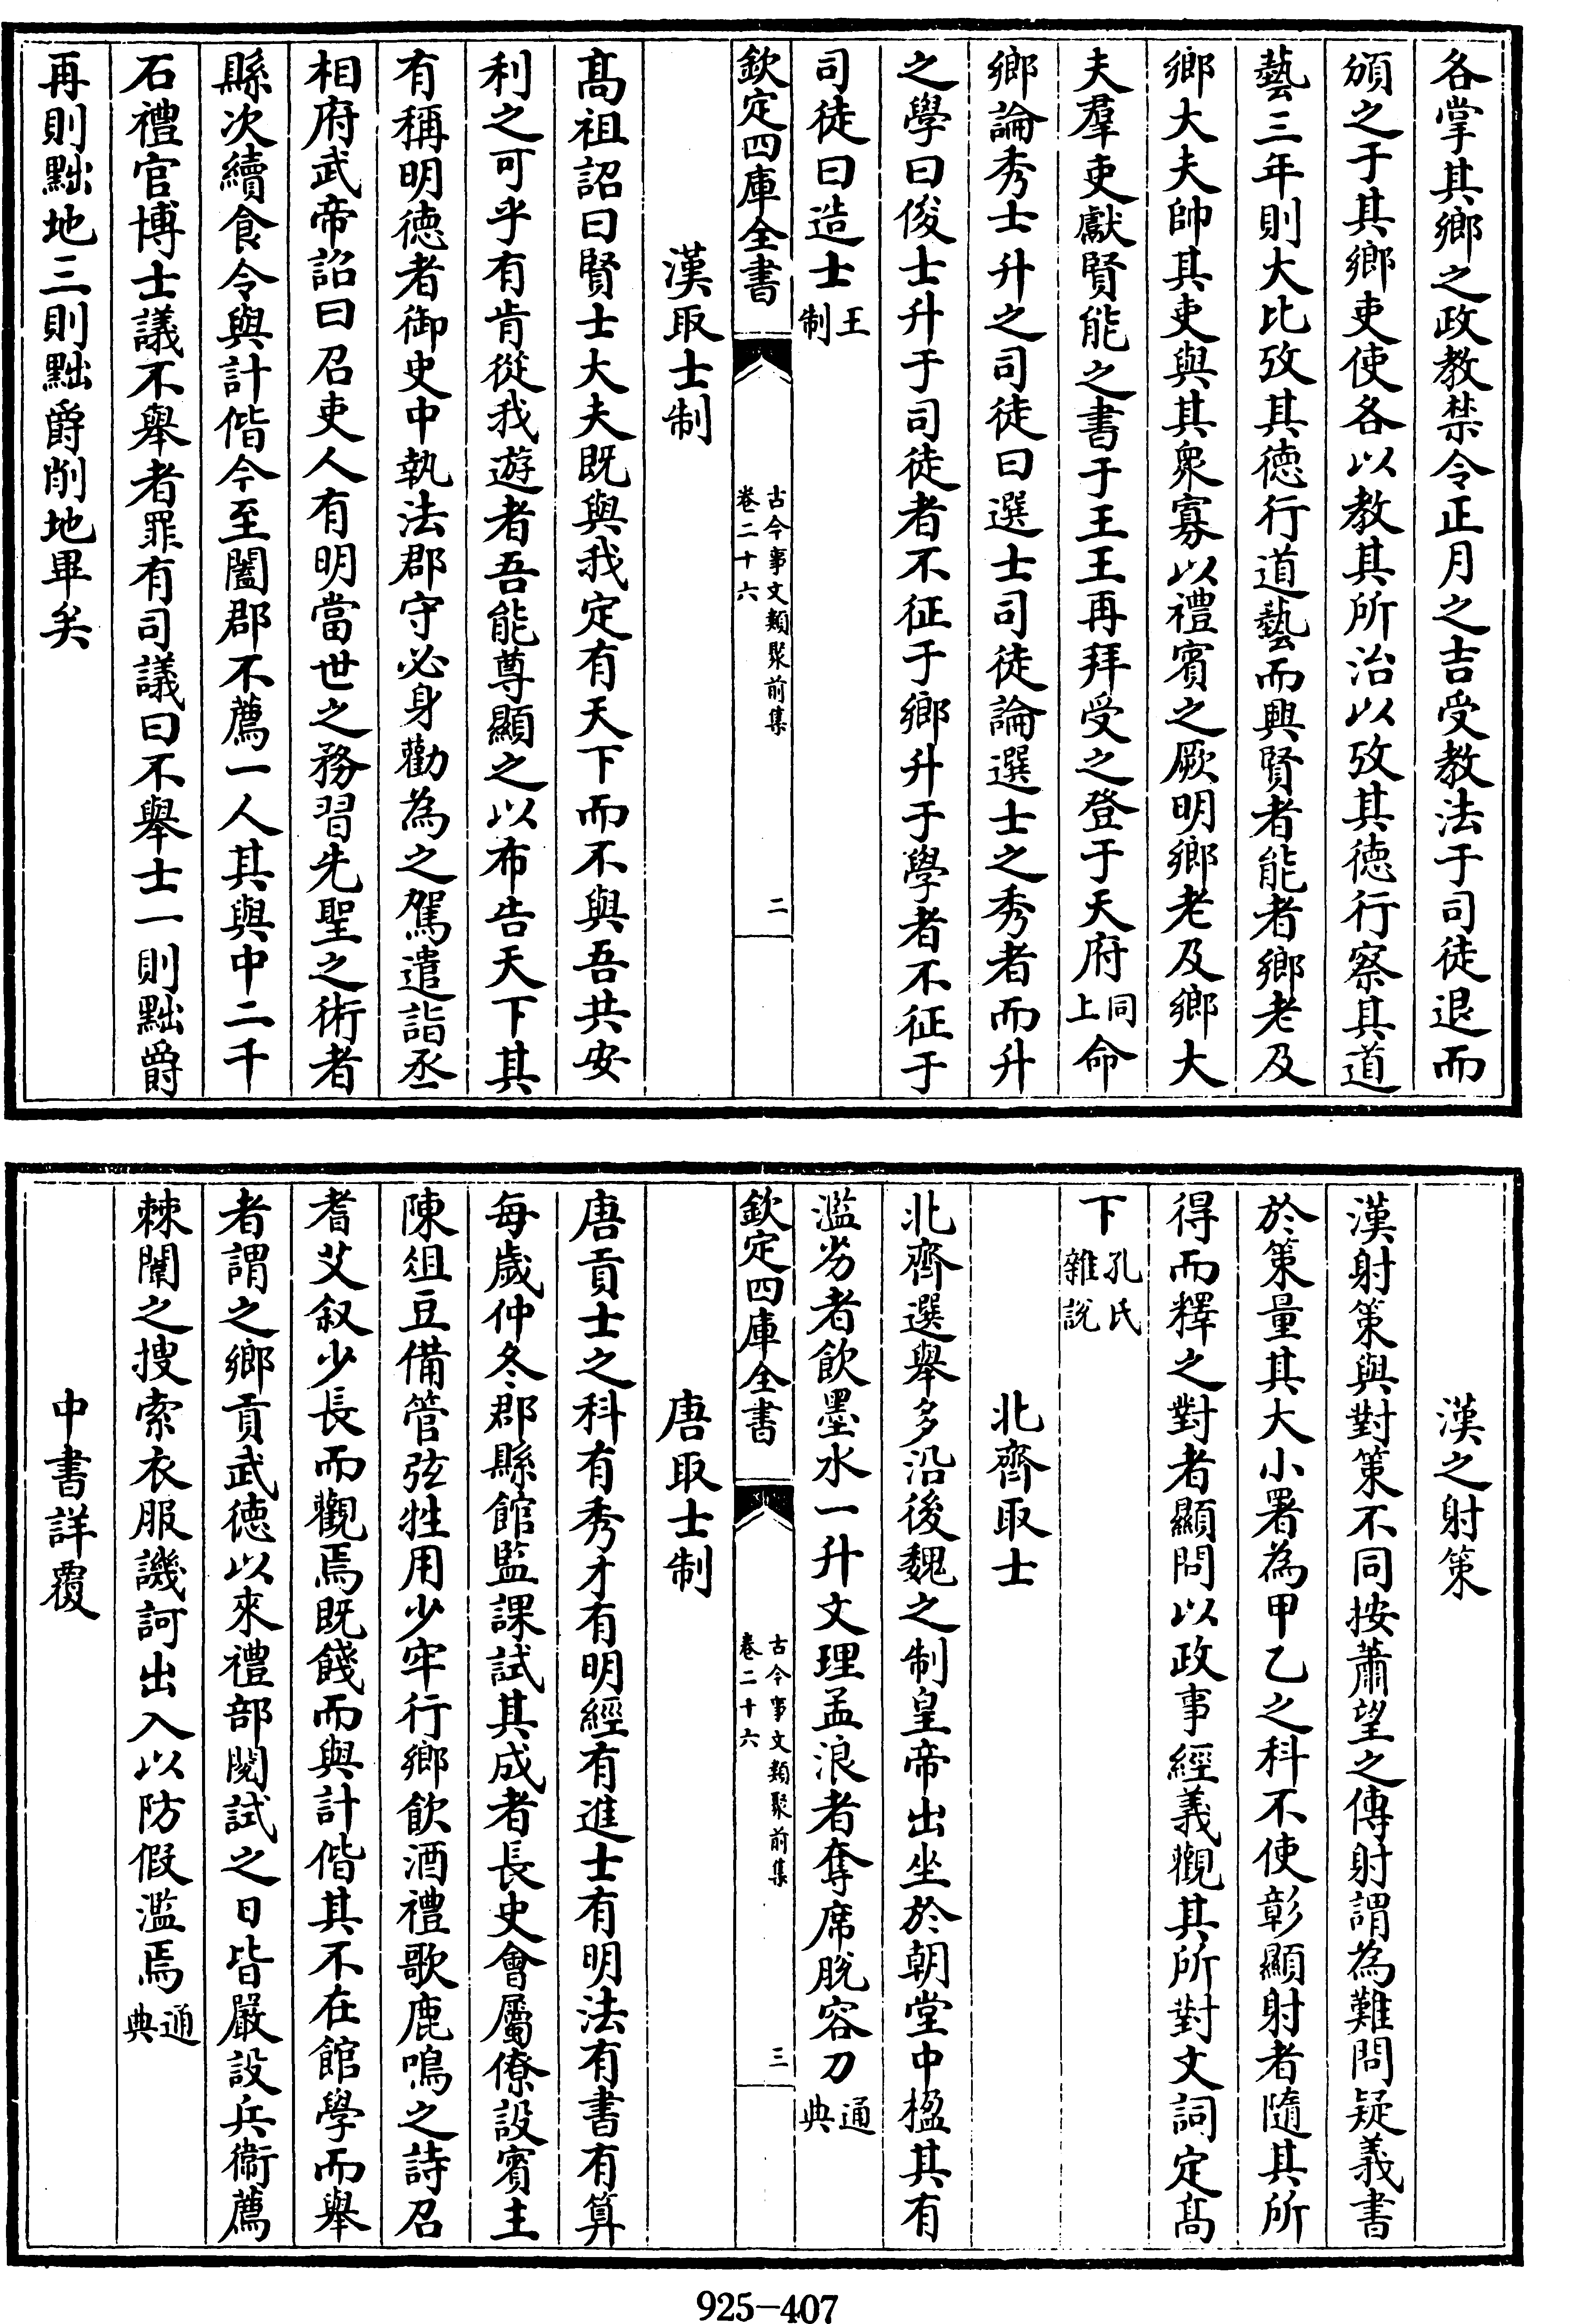 各掌其鄉之政教禁令正月之吉受教法于司徒退而
頒之于其鄉吏使各以教其所治以攷其德行察其道
藝三年則大比攷其德行道藝而興賢者能者鄉老及
鄉大夫帥其吏與其衆寡以禮賓之厥明鄉老及鄉大
夫羣吏獻賢能之書于王王再拜受之登于天府同上命
鄉論秀士升之司徒曰選士司徒論選士之秀者而升
之學曰俊士升于司徒者不征于鄉升于學者不征于
司徒曰造士王制
欽定四庫全書 古今事文類聚前集 卷二十六 二
漢取士制
髙祖詔曰賢士大夫既與我定有天下而不與吾共安
利之可乎有肯從我遊者吾能尊顯之以布告天下其
有稱明德者御史中執法郡守必身勸為之駕遣詣丞
相府武帝詔曰召吏人有明當世之務習先聖之術者
縣次續食令與計偕今至闔郡不薦一人其與中二千
石禮官博士議不舉者罪有司議曰不舉士一則黜爵
再則黜地三則黜爵削地畢矣
漢之射策
漢射策與對策不同按蕭望之傳射謂為難問疑義書
於策量其大小署為甲乙之科不使彰顯射者隨其所
得而釋之對者顯問以政事經義觀其所對文詞定髙
下孔氏雜說
北齊取士
北齊選舉多沿後魏之制皇帝出坐於朝堂中楹其有
濫劣者飲墨水一升文理孟浪者奪席脫容刀通典
欽定四庫全書 古今事文類聚前集 卷二十六 三
唐取士制
唐貢士之科有秀才有明經有進士有明法有書有算
每歲仲冬郡縣館監課試其成者長史會屬僚設賓主
陳俎豆備管弦牲用少牢行鄉飲酒禮歌鹿鳴之詩召
耆艾叙少長而觀焉既餞而與計偕其不在館學而舉
者謂之鄉貢武德以來禮部閱試之日皆嚴設兵衛薦
棘闈之搜索衣服譏訶出入以防假濫焉通典
中書詳覆
925-407